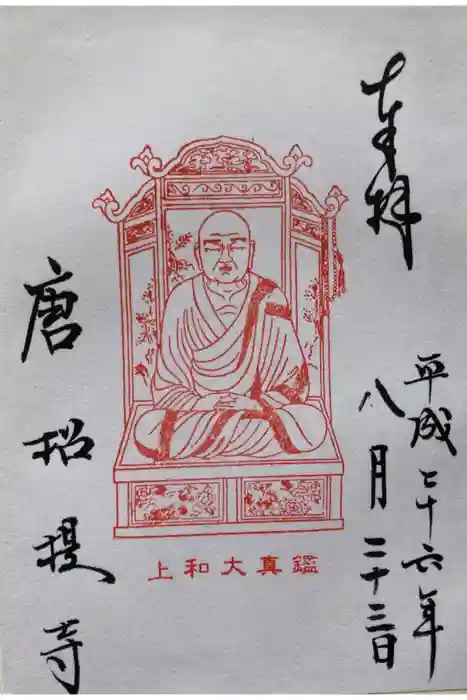 奉拝
平成二十六年
八月二十三日
上和大真鑑
唐招提寺